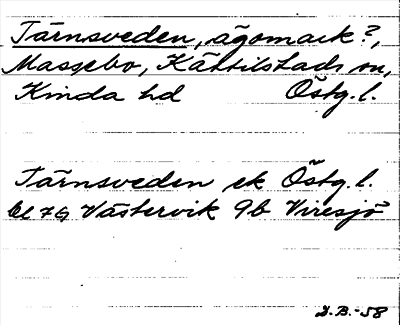 Tärnsveden, ägomark?,
Massebo, Kättilstads sn,
Kinda hd Östg.l.
Tärnsveden ek Östg.l.
bl 7G Västervik 9b Viresjö
J.B.-58